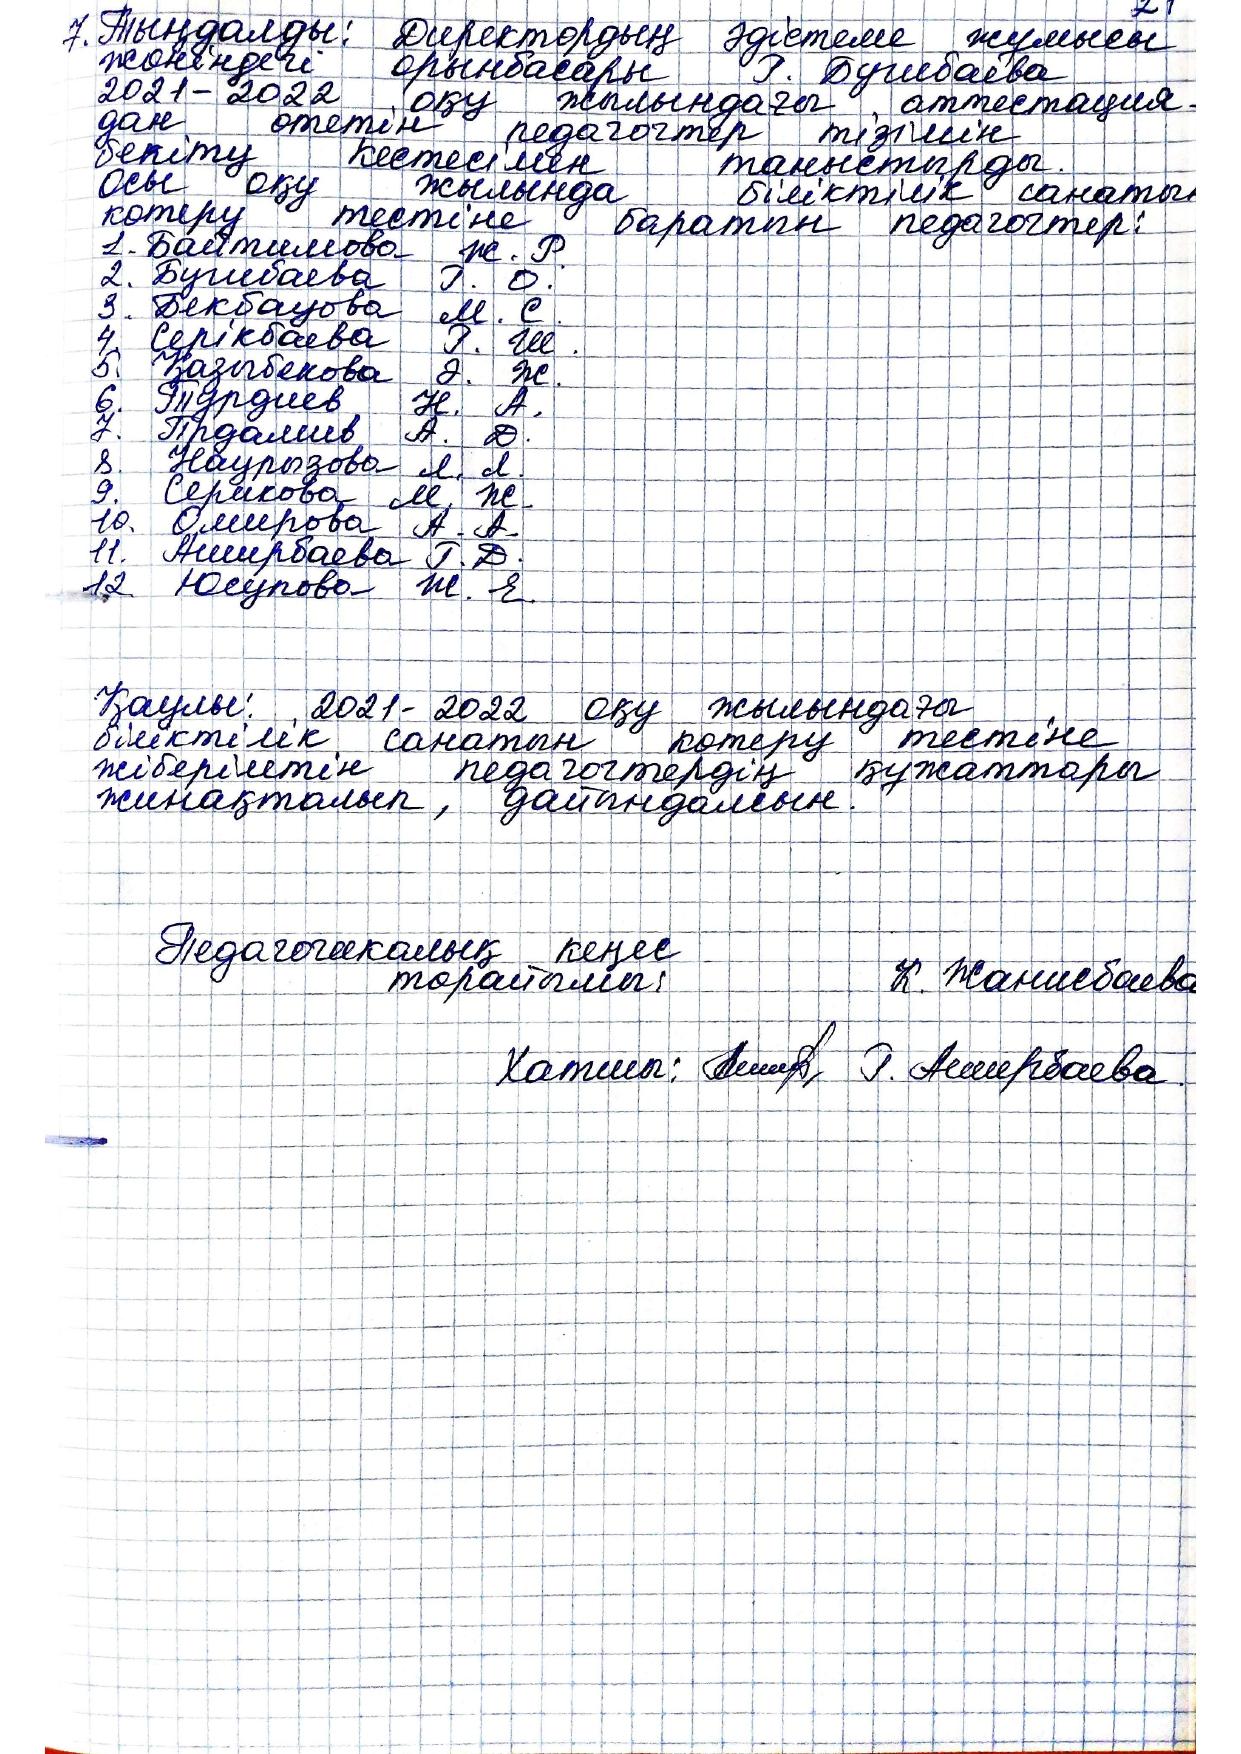 21
7. Тыңдалды: Директордың әдістеме жұмысы
жөніндегі орынбасары Г. Бугибаева
2021-2022 оқу жылындағы аттестация-
дан өтетін педагогтер тізімін
бекіту кестесімен таныстырды.
Осы оқу жылында біліктілік санатын
көтеру тестіне баратын педагогтер:
1. Байтимова Ж. Р.
2. Бугибаева Г. О.
3. Бекбауова М. С.
4. Серікбаева Г. Ш.
5. Қазыбекова Ә. Ж.
6. Турдиев Н. А.
7. А. Д.
8. Наурызова Л. Л.
9. Серикова М. Ж.
10. Омирова А. А.
11. Аширбаева Г. Д.
12 Юсупова Ж. Е.
Қаулы: 2021-2022 оқу жылындағы
біліктілік санатын көтеру тестіне
жіберілетін педагогтердің құжаттары
жинақталып, дайындалсын.
Педагогикалық кеңес
төрайымы: К. Жанисбаева
Хатшы: Г. Аширбаева.